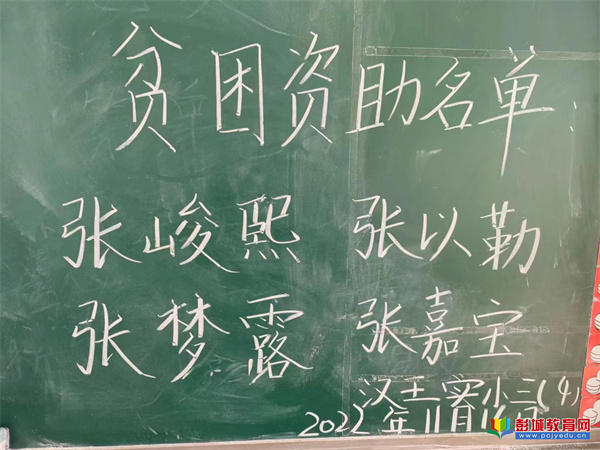 贫困资助名单
张峻熙 张以勤
张梦露 张嘉宝
汉王实小三(4)
2022年11月16日
彭城教育网
www.pcjyedu.com